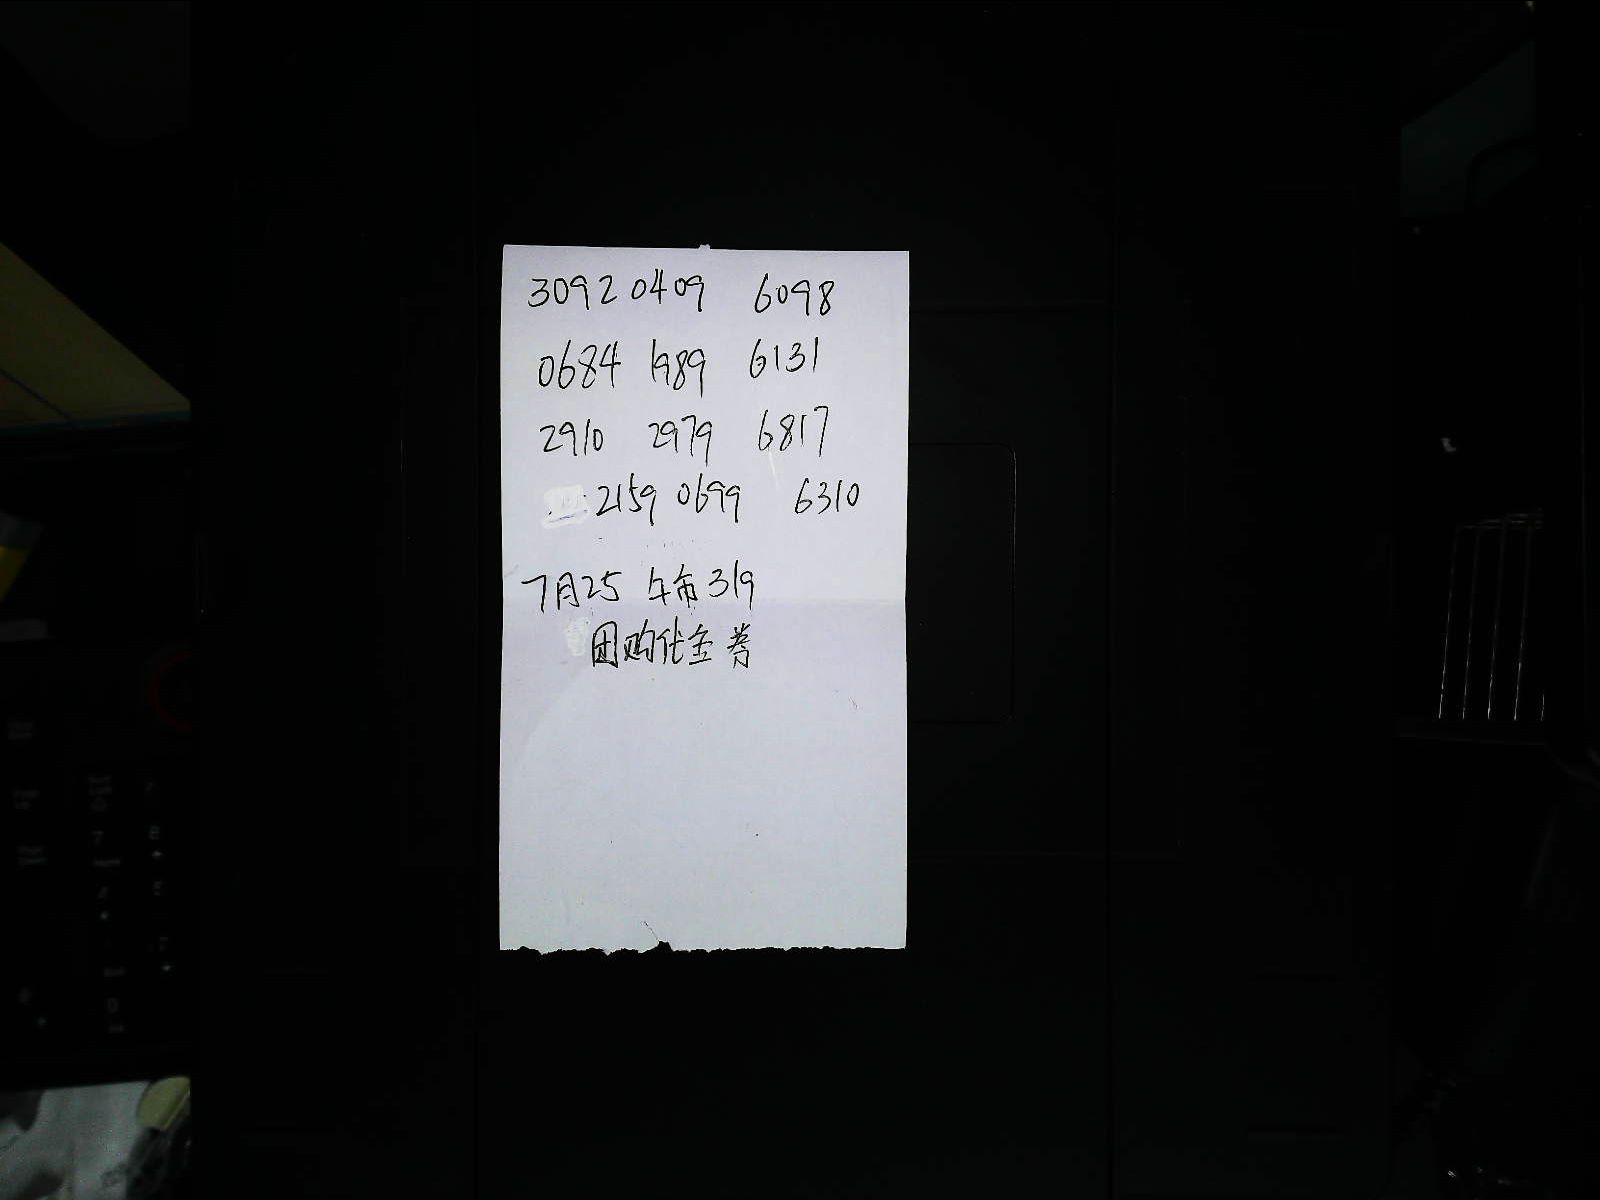 3092 0409 6098
0684 1989 6131
2910 2979 6817
2159 0699 6310
7月25 午市319
团购代金券